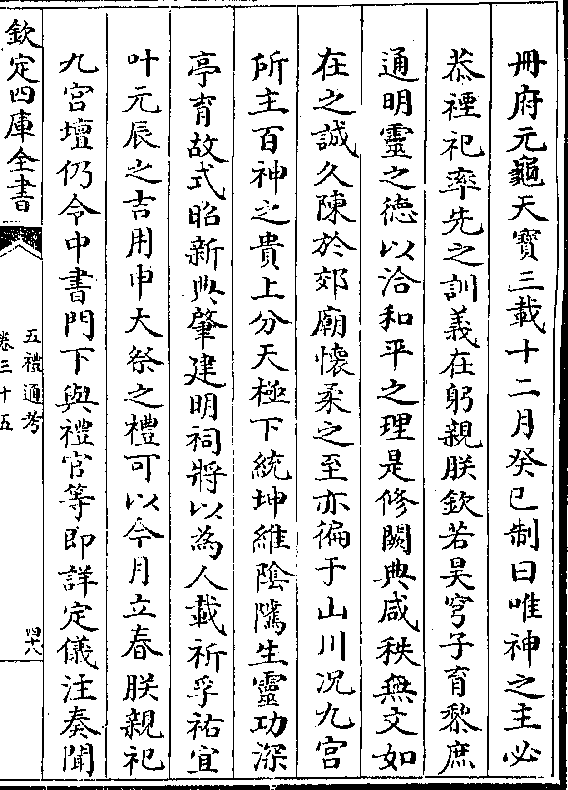 冊府元龜天寶三載十二月癸巳制曰唯神之主必
恭禋祀率先之訓義在躬親朕欽若昊穹子育黎庶
通明靈之德以洽和平之理是修闕典咸秩無文如
在之誠久陳於郊廟懷柔之至亦徧于山川况九宮
所主百神之貴上分天極下統坤維陰隲生靈功深
亭育故式昭新典肇建明祠將以為人載祈孚祐宜
叶元辰之吉用申大祭之禮可以今月立春朕親祀
九宮壇仍令中書門下與禮官等即詳定儀注奏聞
欽定四庫全書
五禮通考
卷三十五
四六